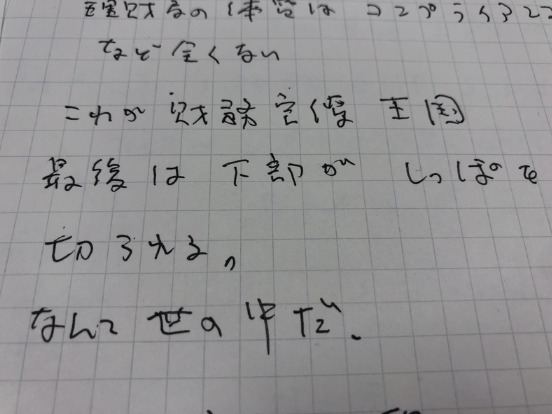 の体質は コンプライアンス
など全くない
これが 財務官僚 王国
最後は 下部が しっぽを
切られる,
なんて 世の中だ.